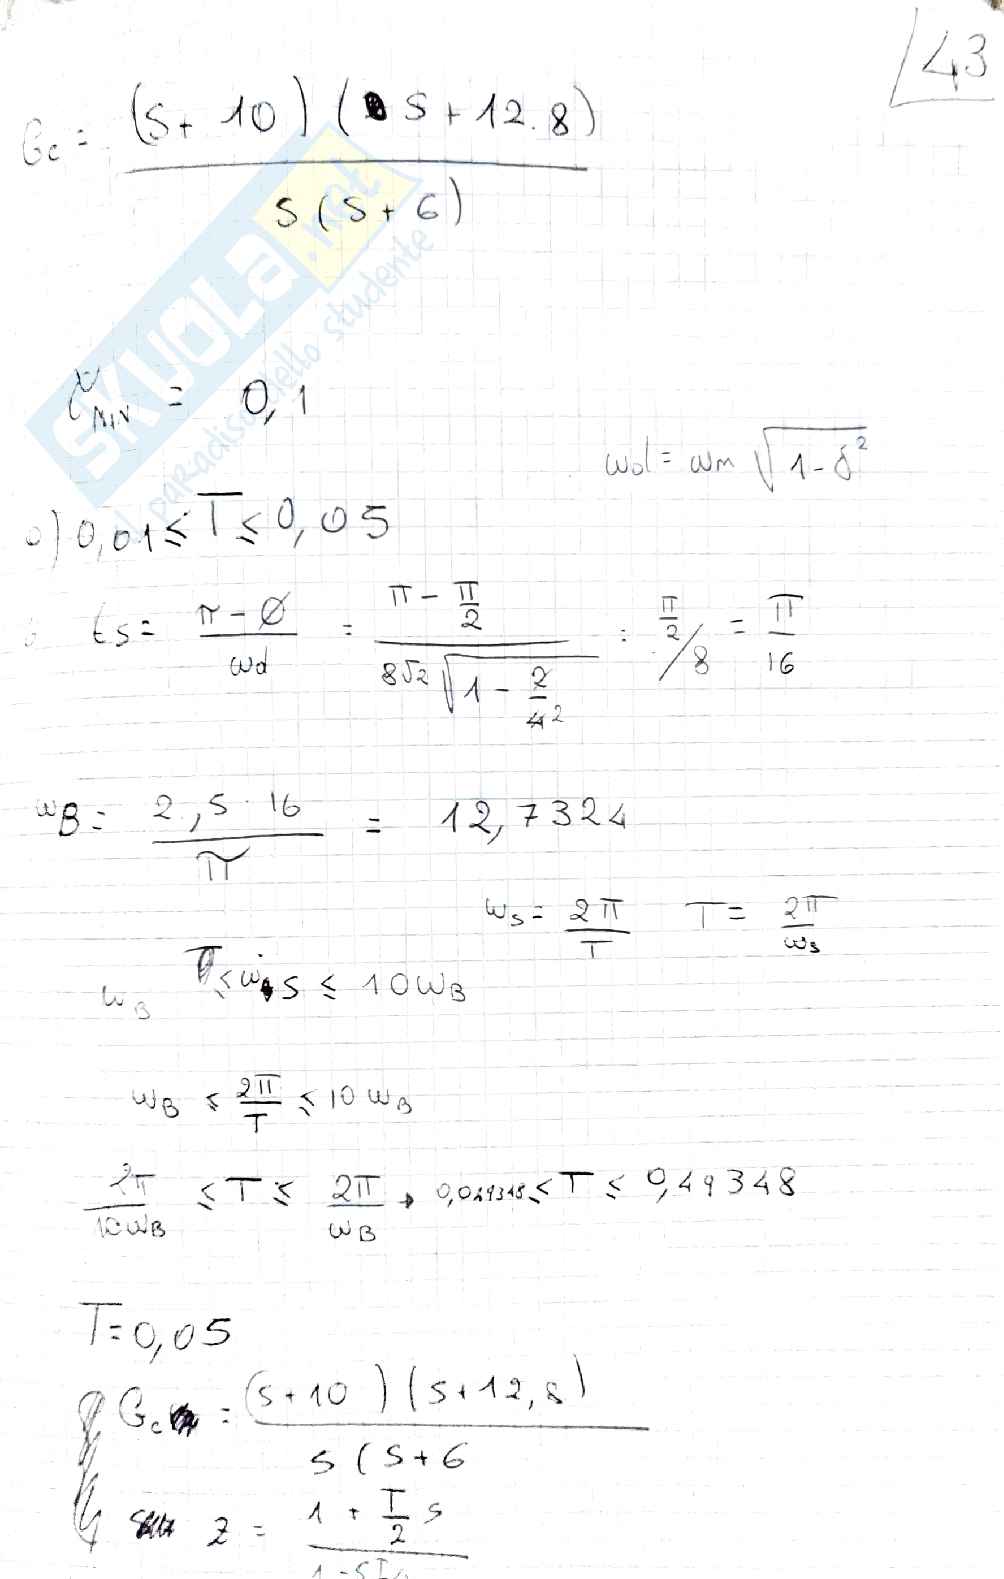 43
Gc = (s + 10) (s + 12.8) / s (s + 6)
SKUOLA.net
il paradiso dello studente
τ MIN = 0,1
ωd = ωn √(1 - δ²)
a) 0,01 ≤ T ≤ 0,05
ts = (π - Ø) / ωd = (π - π/2) / (8√2 √(1 - 2/4²)) = (π/2) / 8 = π/16
ωB = 2,5 · 16 / π = 12,7324
ωs = 2π/T T = 2π/ωs
ωB ≤ ωs ≤ 10ωB
ωB ≤ 2π/T ≤ 10 ωB
2π/10ωB ≤ T ≤ 2π/ωB → 0,049348 ≤ T ≤ 0,49348
T = 0,05
Gc = (s + 10) (s + 12,8) / s (s + 6
z = 1 + T/2 s